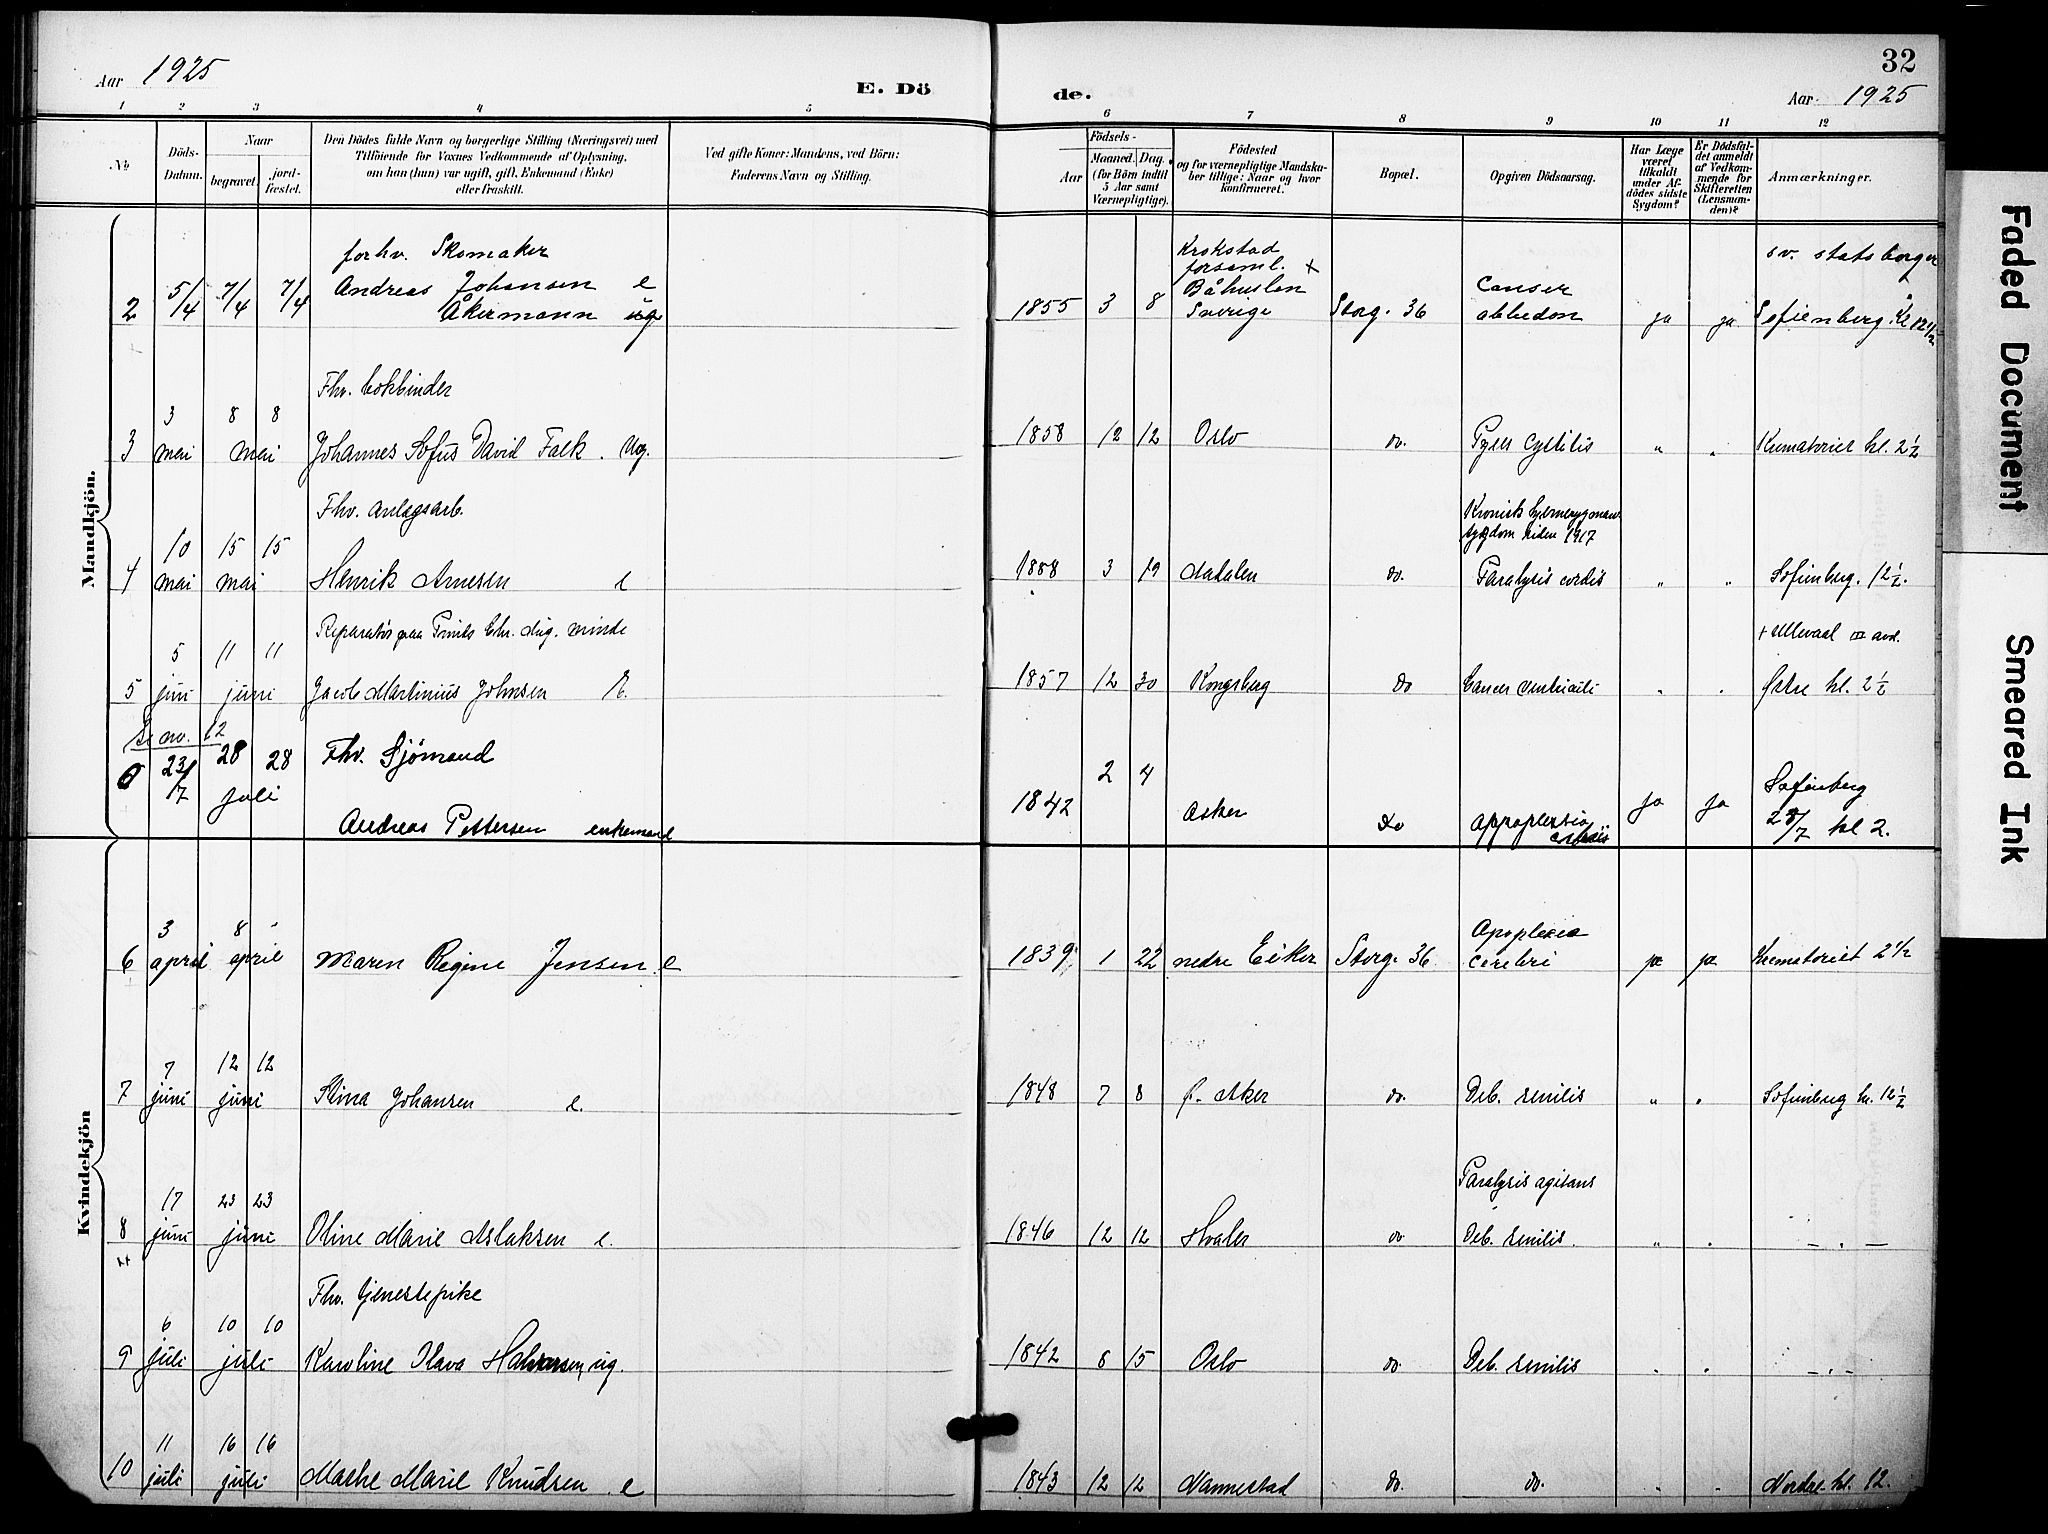 Aar 1925
E. Dö
de.
32
Aar 1925
1 2 3 4 5 6 7 8 9 10 11 12
No
Döds-
Datum.
Naar
begravet.
jord-
fæstet.
Den Dödes fulde Navn og borgerlige Stilling (Næringsvei) med
Tilföiende for Voxnes Vedkommende af Oplysning,
om han (hun) var ugift, gift, Enkemand (Enke)
eller fraskilt.
Ved gifte Koner: Mandens, ved Börn:
Faderens Navn og Stilling.
Födsels-
Aar
Maaned. Dag.
(for Börn indtil
5 Aar samt
Værnepligtige).
Födested
og for værnepligtige Mandska-
ber tillige: Naar og hvor
konfirmeret.
Bopæl.
Opgiven Dödsaarsag.
Har Læge
været
tilkaldt
under Af-
dödes sidste
Sygdom?
Er Dödsfal-
det anmeldt
af Vedkom-
mende for
Skifteretten
(Lensman-
den)?
Anmærkninger.
Mandkjön.
forhv. Skomaker
Krokstad
forsaml. +
sv. statsborger
2 5/4 7/4 7/4 Andreas Johansen e
Åkermann ug
1855 3 8 Båhuslen
Sverige
Storg. 36
Canser
abbedom
ja ja Sofienberg. Kl 12 1/2
Fhv. bokbinder
3 8 8
3 mai mai Johannes Sofus David Falk. Ug. 1858 12 12 Oslo do. Pyser cystitis " " Krematoriet kl. 2 1/2
Fhv. anlægsarb.
Kronisk
sygdom siden 1917
10 15 15
4 mai mai Henrik Arnesen e 1858 3 19 Aadalen do. Paralysis cordis " " Sofienberg. 12 1/2.
Reparatør paa Prinds Chr. Aug. minde
+ Ullevaal III avd.
5 11 11
5 juni juni Jacob Martinius Johnsen E. 1857 12 30 Kongsberg do Cancer ventriculi " " Østre kl. 2 1/2
Se nr. 12
6 23/7 28 28 juli Fhv. Sjömand
Andreas Pettersen enkemand
1842 2 4 Asker do Appoplexia
cordis
ja ja Sofienberg
28/7 kl 2.
Kvindekjön
3 8 "
6 april april Maren Regine Jensen e 1839 1 22 nedre Eiker Storg. 36 Apoplexia
cerebri
ja ja Krematoriet 2 1/2
7 12 12
7 juni juni Stina Johansen e. 1848 7 8 Ø. Aker do. Deb. senilis " " Sofienberg kl. 12 1/2
17 23 23
Paralysis agitans
8 juni juni Oline Marie Aslaksen e. 1846 12 12 Hvaler do Deb. senilis. " " — " —
Fhv. tjenestepike
6 10 10
9 juli juli Karoline Olava Halvorsen, ug. 1842 8 15 Oslo do. Deb. senilis " " — " —
11 16 16
10 juli juli Marthe Marie Knudsen. e 1843 12 12 Nannestad do. do. " " Nordre kl. 12.
Faded Document
Smeared Ink